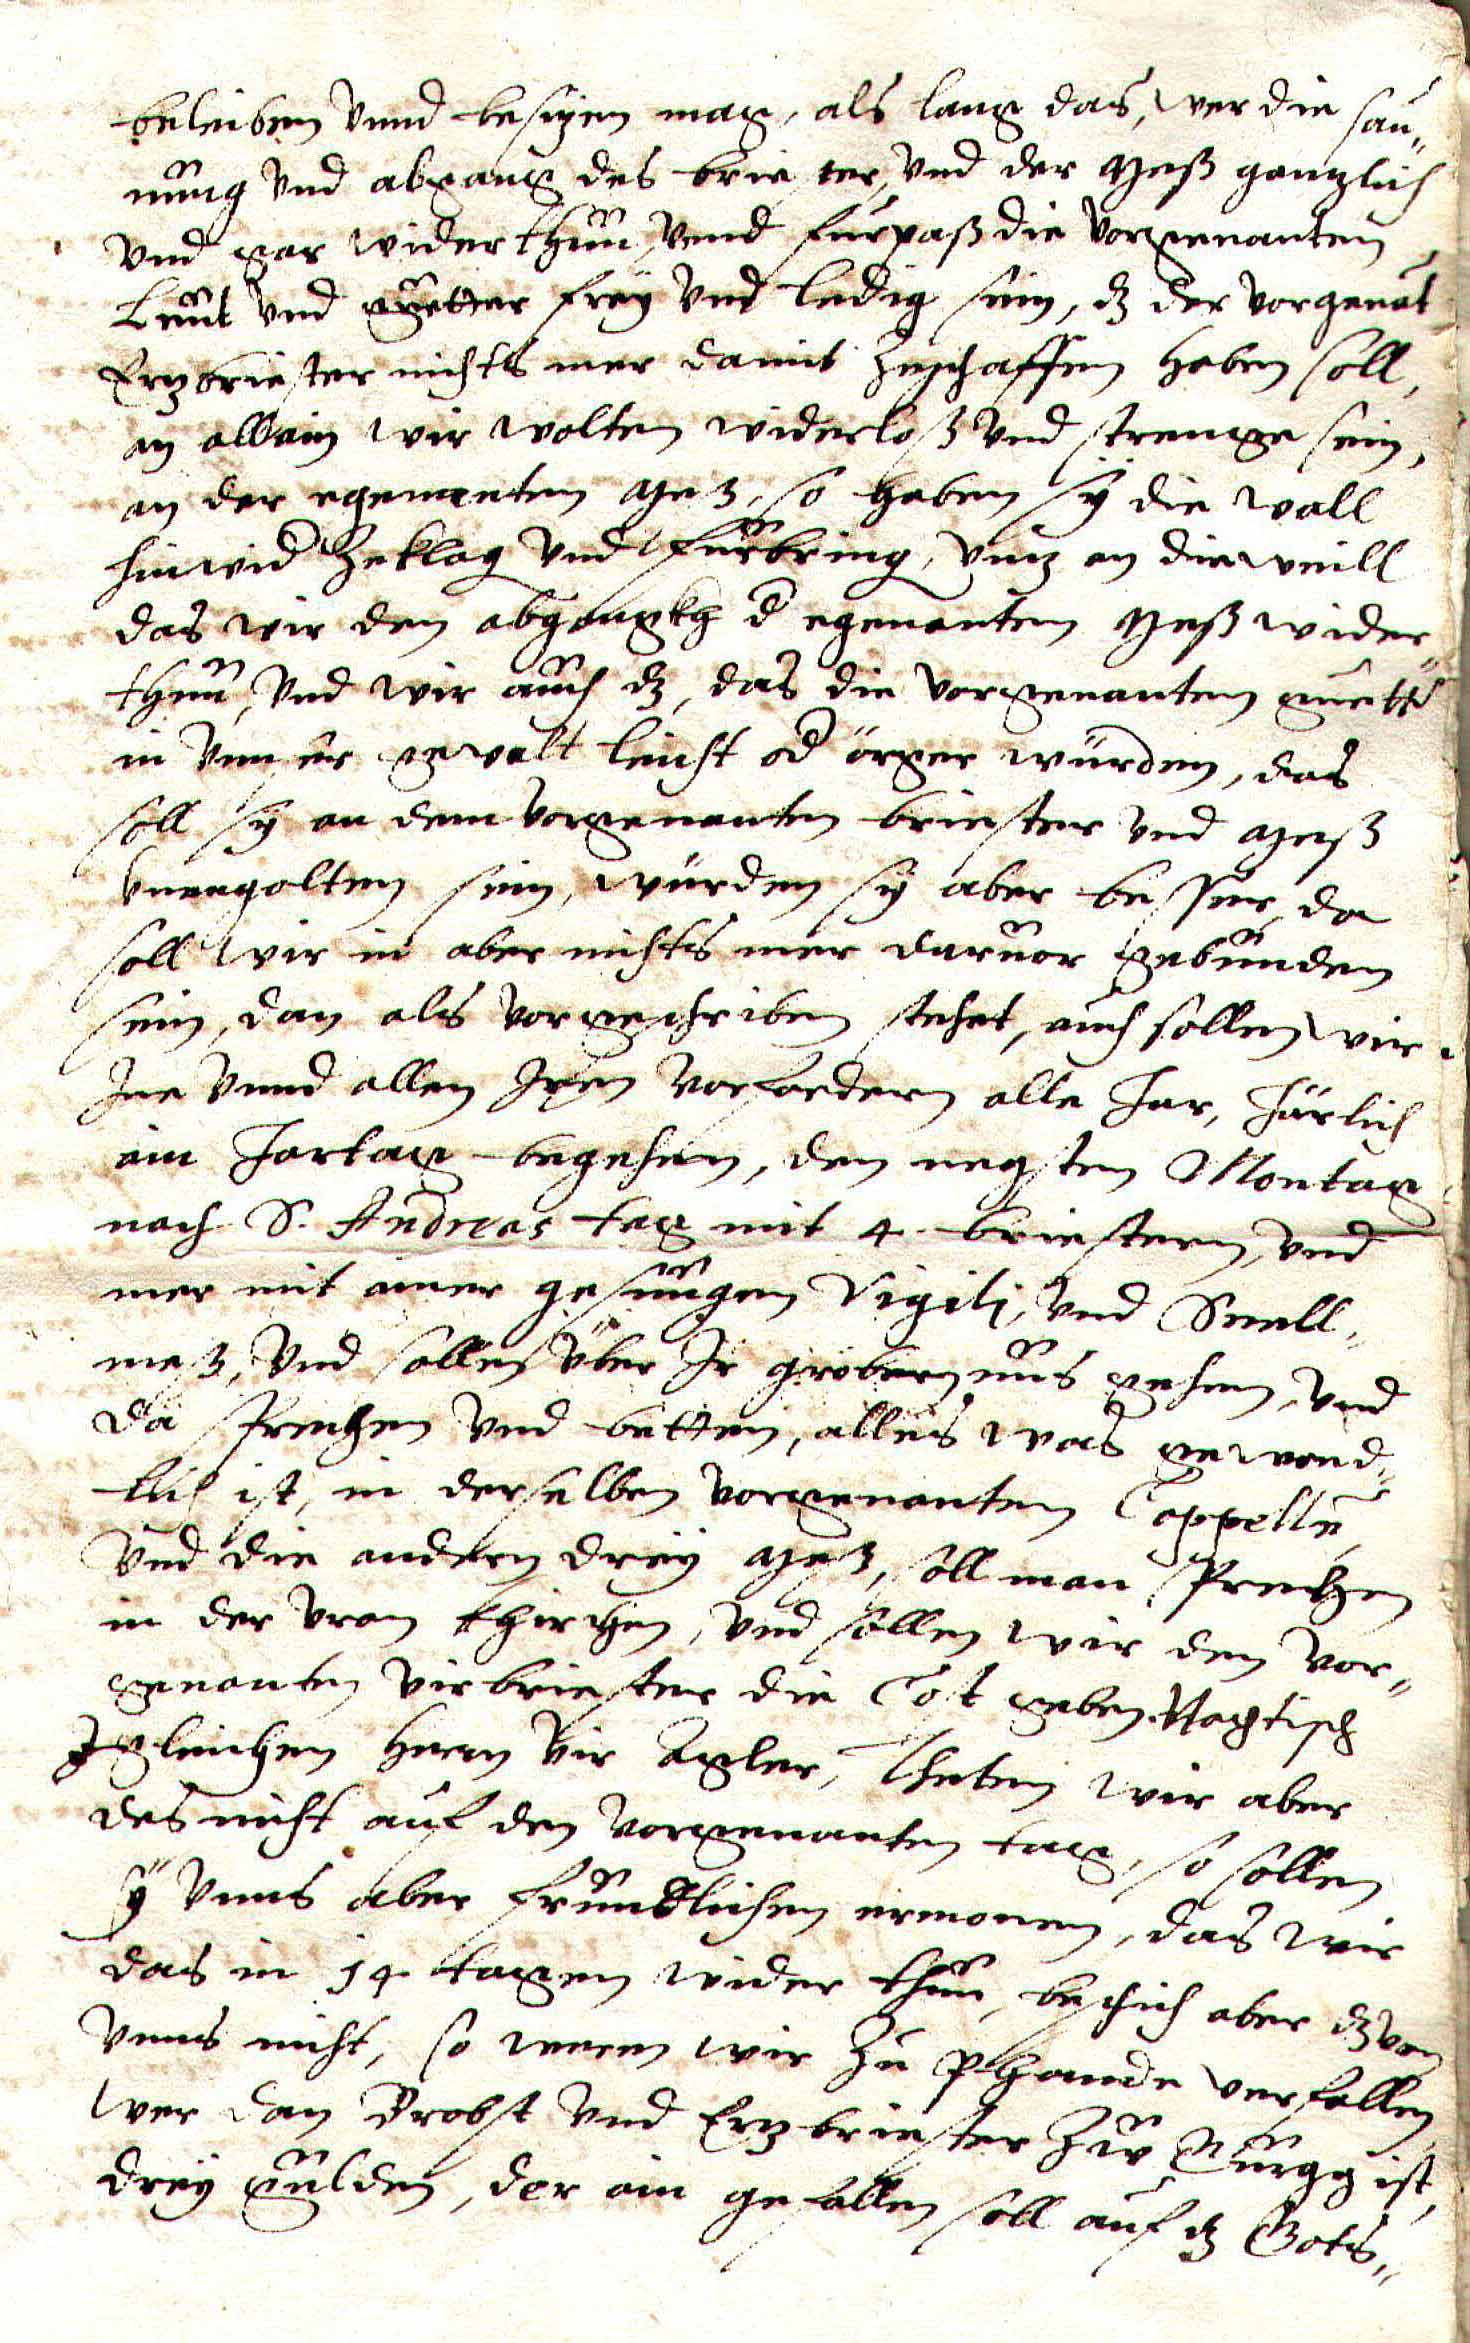 beleiben vnnd besizen mag, als lang das, wer die sau„
nung vnd abgang des briester, vnd der Meß gantzlich
vnd gar widerthun, vnnd furpaß die vorgenanten
Leut vnd guetter frey vnd ledig sein, dz der vorgenāt
Erzbriester nichts mer damit zeschaffen haben soll,
an allain wir wolten widerloß vnd strenge sein,
an der egenanten Meß, so haben sy die wall
hinwid zeklag vnd furbring, vnz an die weill
das wir den abgangkh d egenanten Meß wider„
thun, vnd wir auch dz, das die vorgenanten guettr
in vnser gewalt leicht od örger würden, das
soll sy an dem vorgenanten briester vnd Meß
vnengolten sein, würden sy aber besser, da
soll wir in aber nichts mer daruor gebunden
sein, dan als vorgeschriben stehet, auch sollen wir
Jne vnnd allen Jren vorfordern alle Jar, Järlich
ain Jartag begehen, den negsten Montag
nach S. Andreas tag mit 4 briestern, vnd
mer mit ainer gesungen Vigilj, vnd Seell„
meß, vnd sollen über Jr grebern aus gehen, vnd
da sprechen vnd betten, alles was gewond„
lich ist, in derselben vorgenanten Cappellē,
vnd die andern drey Meß, soll man sprechen
in der vron khirchen, vnd sollen wir den vor„
genanten vir briester die Cost geben. Nachtisch
Jgleichen herrn vir Agler, Theten wir aber
des nicht auf den vorgenanten tag, so sollen
sy vnns aber freundlichen ermonen, das wir
das in 14 tagen wider thun, beschich aber dz von
vnns nicht, so weren wir zu Phande verfallen
wer dan Brobst vnd Erzbriester zu Gurgg ist,
drey gulden, der ain gefallen soll auf dz Gots„